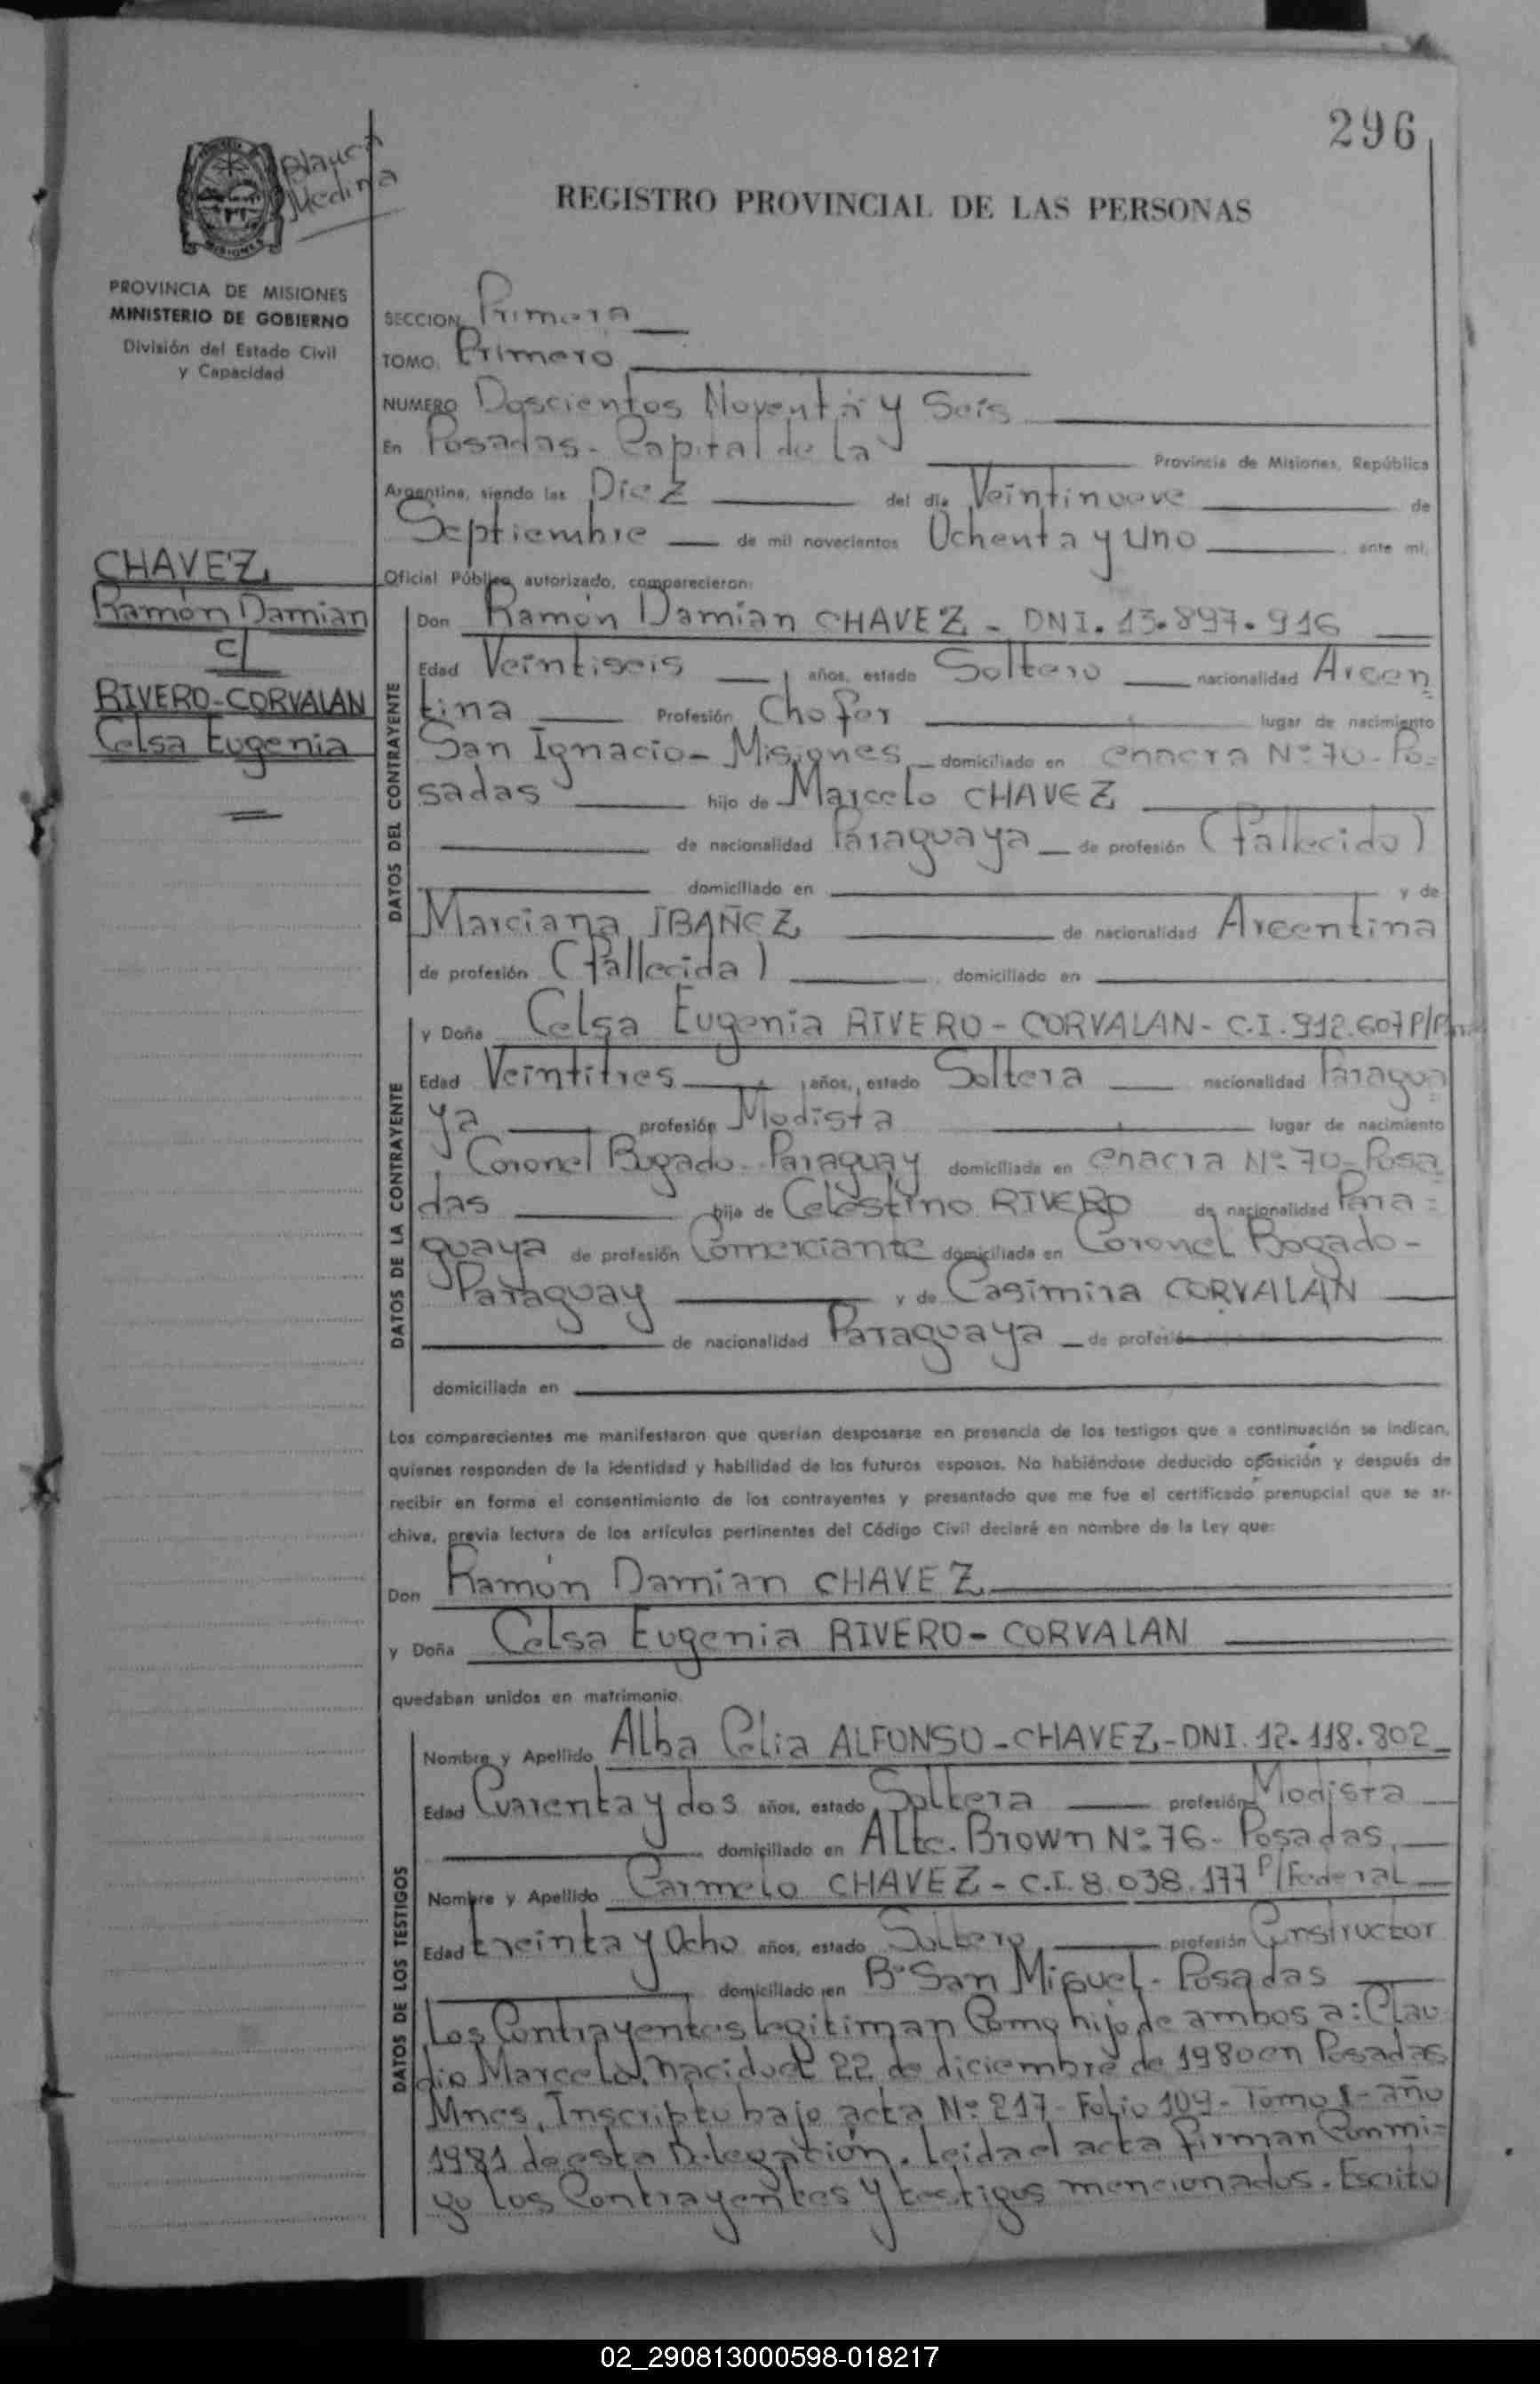 296
Blanca
Medina
REGISTRO PROVINCIAL DE LAS PERSONAS
MISIONES
PROVINCIA DE MISIONES
MINISTERIO DE GOBIERNO
División del Estado Civil
y Capacidad
SECCION Primera
TOMO Primero
NUMERO Doscientos Noventa y Seis
En Posadas - Capital de la Provincia de Misiones, República
Argentina, siendo las Diez del día Veintinueve de
Septiembre de mil novecientos Ochenta y Uno ante mí,
Oficial Público autorizado, comparecieron:
CHAVEZ
Ramón Damian
c/
RIVERO-CORVALAN
Celsa Eugenia
DATOS DEL CONTRAYENTE
Don Ramón Damian CHAVEZ - DNI. 13.897.916
Edad Veintiseis años, estado Soltero nacionalidad Argen
tina Profesión Chofer lugar de nacimiento
San Ignacio - Misiones domiciliado en Chacra Nº 70 - Po=
sadas hijo de Marcelo CHAVEZ
de nacionalidad Paraguaya de profesión (Fallecido)
domiciliado en y de
Marciana IBAÑEZ de nacionalidad Argentina
de profesión (Fallecida) domiciliado en
DATOS DE LA CONTRAYENTE
y Doña Celsa Eugenia RIVERO - CORVALAN - C.I. 912.607
Edad Veintitres años, estado Soltera nacionalidad Paragua
ya profesión Modista lugar de nacimiento
Coronel Bogado - Paraguay domiciliada en Chacra Nº 70 - Posa
das hija de Celestino RIVERO de nacionalidad Para=
guaya de profesión Comerciante domiciliada en Coronel Bogado -
Paraguay y de Casimira CORVALAN
de nacionalidad Paraguaya de profesión
domiciliada en
Los comparecientes me manifestaron que querían desposarse en presencia de los testigos que a continuación se indican,
quienes responden de la identidad y habilidad de los futuros esposos. No habiéndose deducido oposición y después de
recibir en forma el consentimiento de los contrayentes y presentado que me fue el certificado prenupcial que se ar-
chiva, previa lectura de los artículos pertinentes del Código Civil declaré en nombre de la Ley que:
Don Ramón Damian CHAVEZ
y Doña Celsa Eugenia RIVERO - CORVALAN
quedaban unidos en matrimonio.
DATOS DE LOS TESTIGOS
Nombre y Apellido Alba Celia ALFONSO - CHAVEZ - DNI. 12.118.802
Edad Cuarenta y dos años, estado Soltera profesión Modista
domiciliado en Alte. Brown Nº 76 - Posadas
Nombre y Apellido Carmelo CHAVEZ - C.I. 8.038.177 P/Federal
Edad treinta y Ocho años, estado Soltero profesión Constructor
domiciliado en Bº San Miguel - Posadas
Los Contrayentes legitiman Como hijo de ambos a: Clau
dio Marcelo, nacido el 22 de diciembre de 1980 en Posadas
Mnes, Inscripto bajo acta Nº 217 - Folio 109 - Tomo I - año
1981 de esta Delegación. Leida el acta firman Conmi=
go los Contrayentes y testigos mencionados. Escrito
02_290813000598-018217